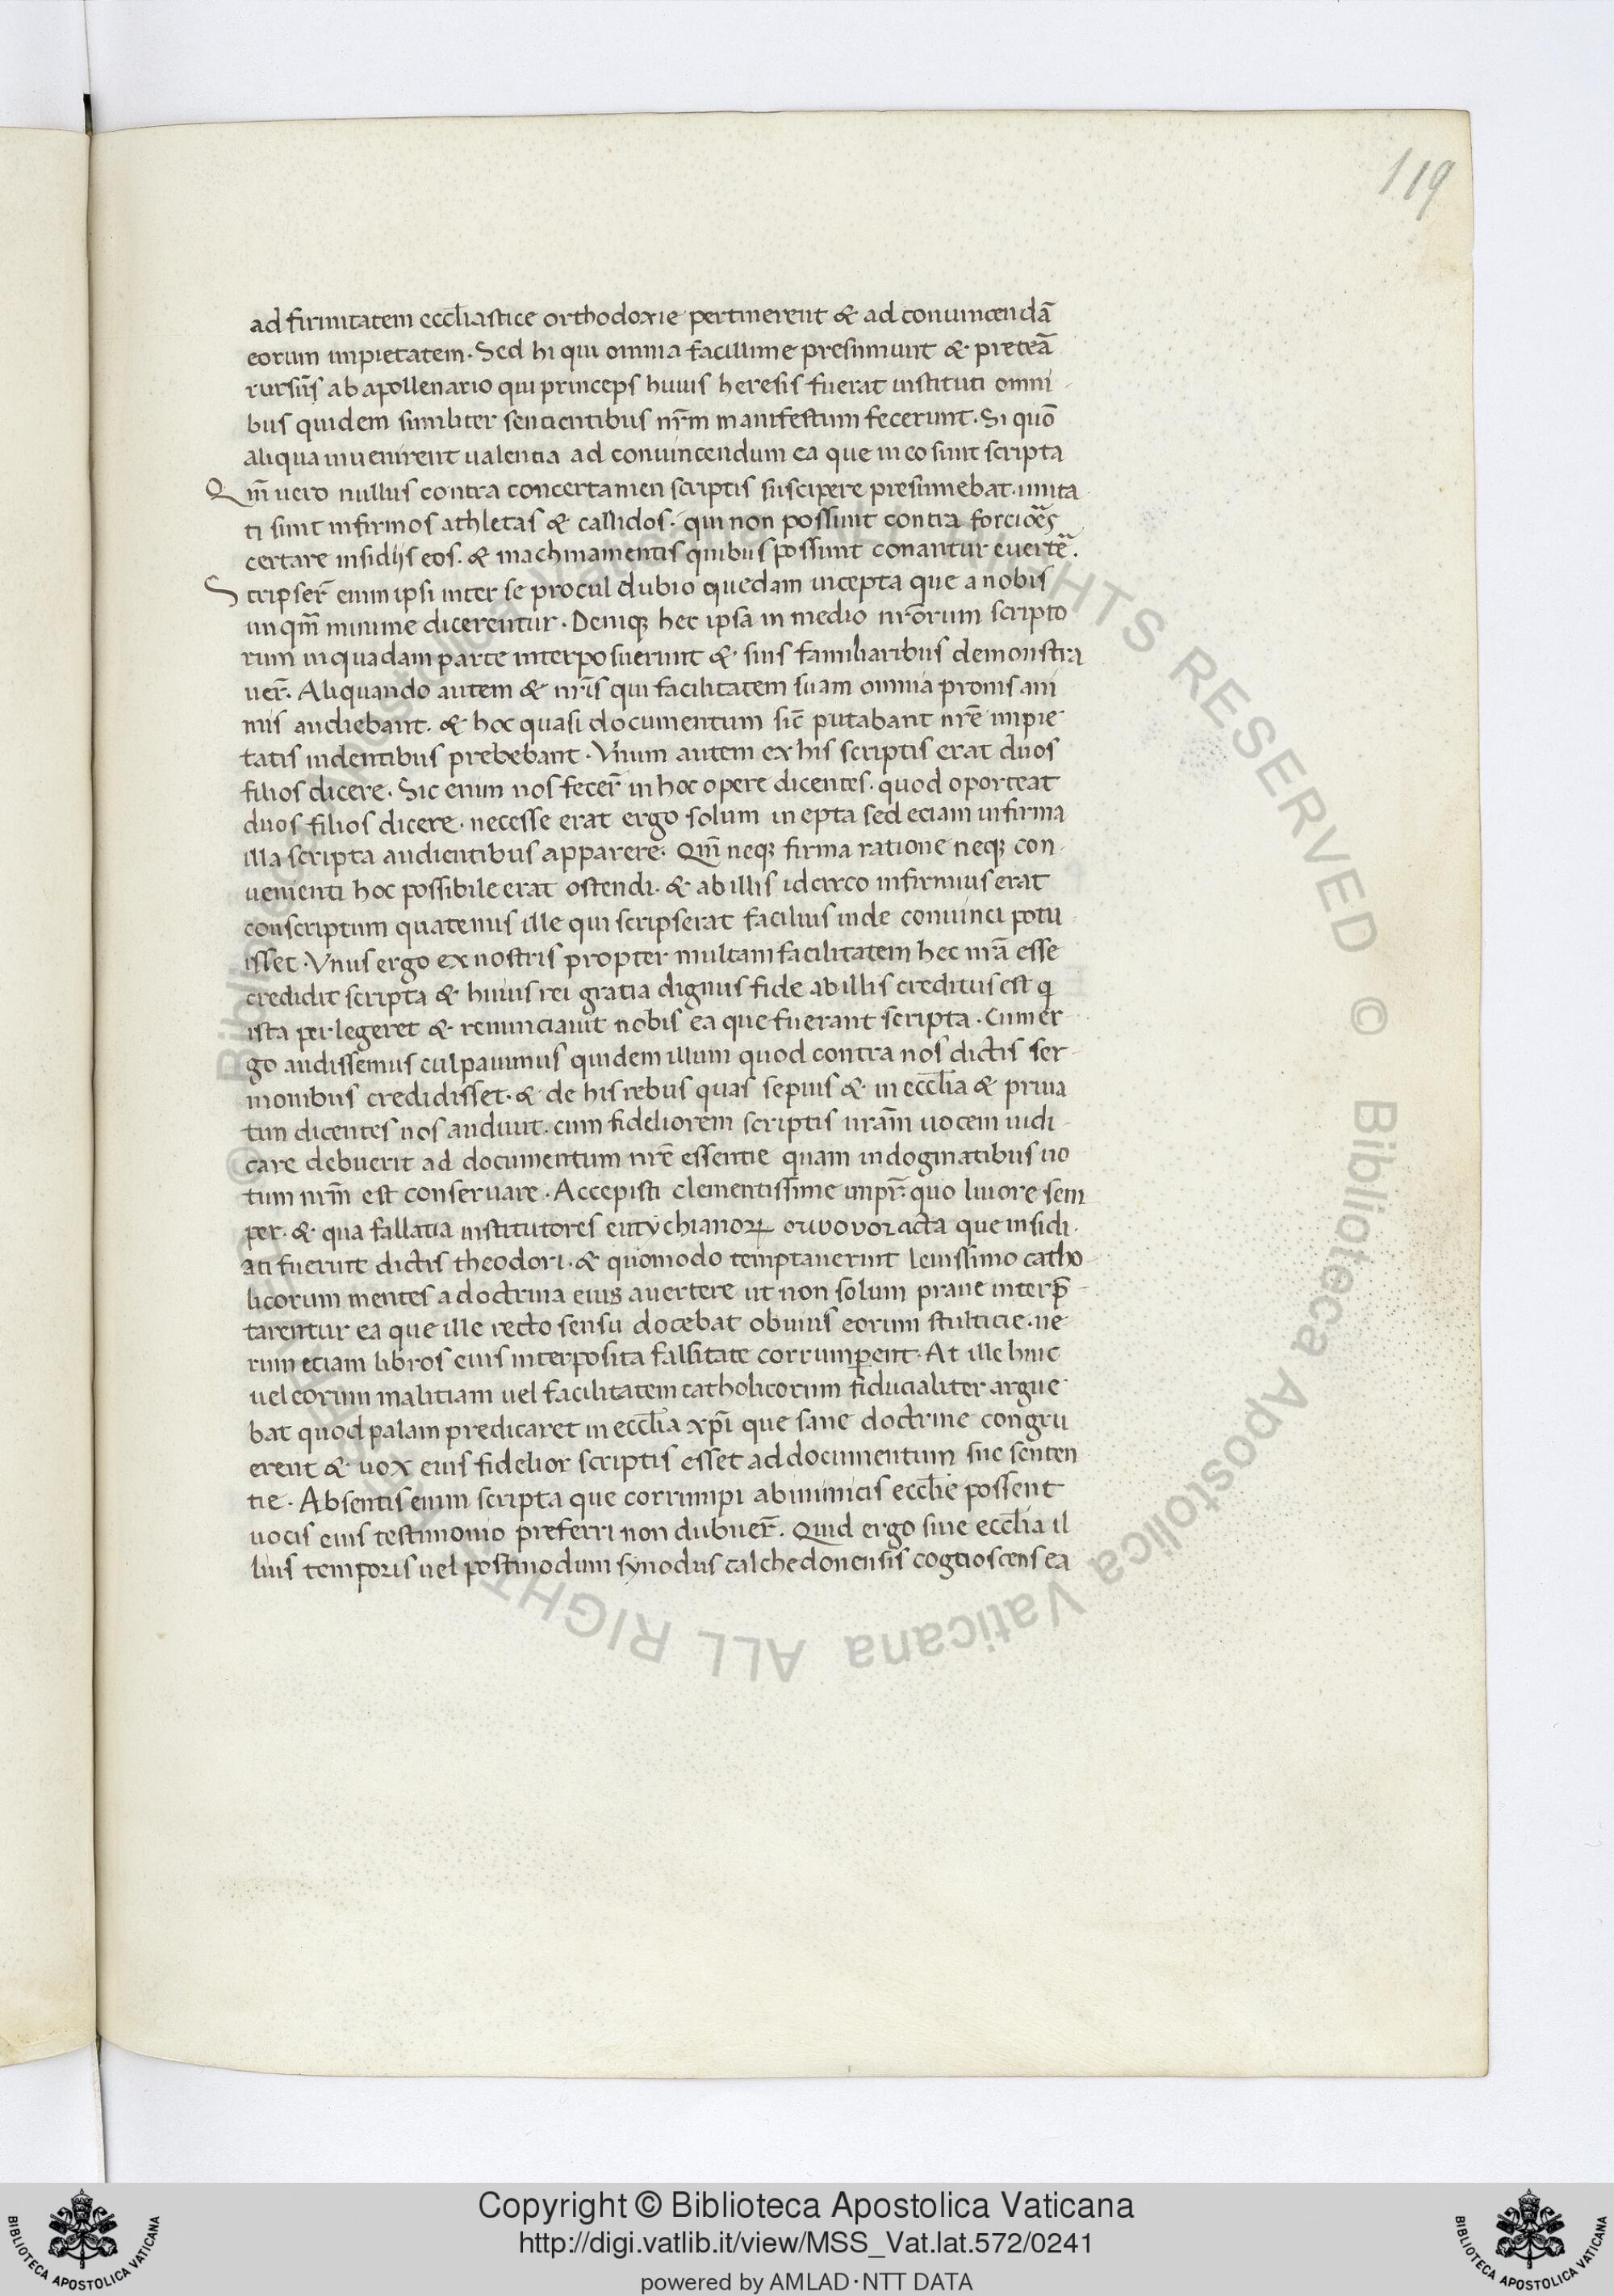 119
ad firmitatem eccl̄iastice orthodoxie pertinerent & ad conuincendā
eorum impietatem. Sed hi qui omnia facillime presumunt & preteā
rursū s ab apollenario qui princeps huius heresis fuerat instituti omni
bus quidem similiter sencientibus nr̄m manifestum fecerunt. Si quō
aliqua inuenirent ualentia ad conuincendum ea que in eo sunt scripta
Qm̄ uero nullus contra concertamen scriptis suscipere presumebat. imita
ti sunt infirmos athletas & callidos. qui non possunt contra forciōēs
certare insidijs eos. & machinamentis quibus possunt conantur euertē.
Scripser̄ enim ipsi inter se procul dubio quedam incepta que a nobis
unqm̄ minime dicerentur. Deniqȝ hec ipsa in medio nrōrum scripto
rum in quadam parte interposuerunt & suis familiaribus demonstra
uer̄. Aliquando autem & nr̄is qui facilitatem suam omnia pronis ani
mis audiebant. & hoc quasi documentum sic̄ putabant nrē impie
tatis uidentibus prebebant. Vnum autem ex his scriptis erat duos
filios dicere. Sic enim nos fecer̄ in hoc opere dicentes. quod oporteat
duos filios dicere. necesse erat ergo solum inepta sed eciam infirma
illa scripta audientibus apparere. Qm̄ neqȝ firma ratione neqȝ con
uenienti hoc possibile erat ostendi. & ab illis idcirco infirmius erat
conscriptum quatenus ille qui scripserat facilius inde conuinci potu
isset. Vnus ergo ex nostris propter multam facilitatem hec nrā esse
credidit scripta & huius rei gratia dignus fide ab illis creditus est q
ista perlegeret & renunciauit nobis ea que fuerant scripta. Cum er
go audissemus culpauimus quidem illum quod contra nos dictis ser
monibus credidisset. & de his rebus quas sepius & in eccl̄ia & priua
tim dicentes nos audiuit. cum fideliorem scriptis nrām uocem iudi
care debuerit ad documentum nrē essentie quam in dogmatibus uo
tum nrm̄ est conseruare. Accepisti clementissime impr̄. quo liuore sem
per. & qua fallatia institutores eutychianoꝝ acta que insidi
ati fuerunt dictis theodori. & quomodo temptauerunt leuissimo catho
licorum mentes a doctrina eius auertere ut non solum praue interp̄
tarentur ea que ille recto sensu docebat obuius eorum stulticie. ue
rum eciam libros eius interposita falsitate corrump̄ent. At ille hinc
uel eorum malitiam uel facilitatem catholicorum fiducialiter argue
bat quod palam predicaret in eccl̄ia xp̄i que sane doctrine congru
erent & uox eius fidelior scriptis esset ad documentum sue senten
tie. Absentis enim scripta que corrumpi ab inimicis eccl̄ie possent
uocis eius testimonio preferri non dubuer̄. Quid ergo siue eccl̄ia il
lius temporis uel postmodum synodus calchedonensis cogtioscens ea
© Biblioteca Apostolica Vaticana ALL RIGHTS RESERVED © Biblioteca Apostolica Vaticana ALL RIGHTS RESERVED
Copyright © Biblioteca Apostolica Vaticana
http://digi.vatlib.it/view/MSS_Vat.lat.572/0241
powered by AMLAD·NTT DATA
BIBLIOTECA APOSTOLICA VATICANA
BIBLIOTECA APOSTOLICA VATICANA